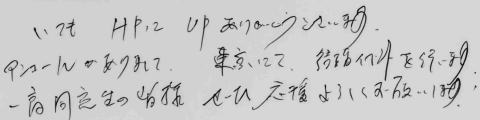 いつも HPに UP ありがとうございます。
アンコールがありまして、東京にて、 を行います。
一高同窓生の皆様 ぜひ応援よろしくお願いします。